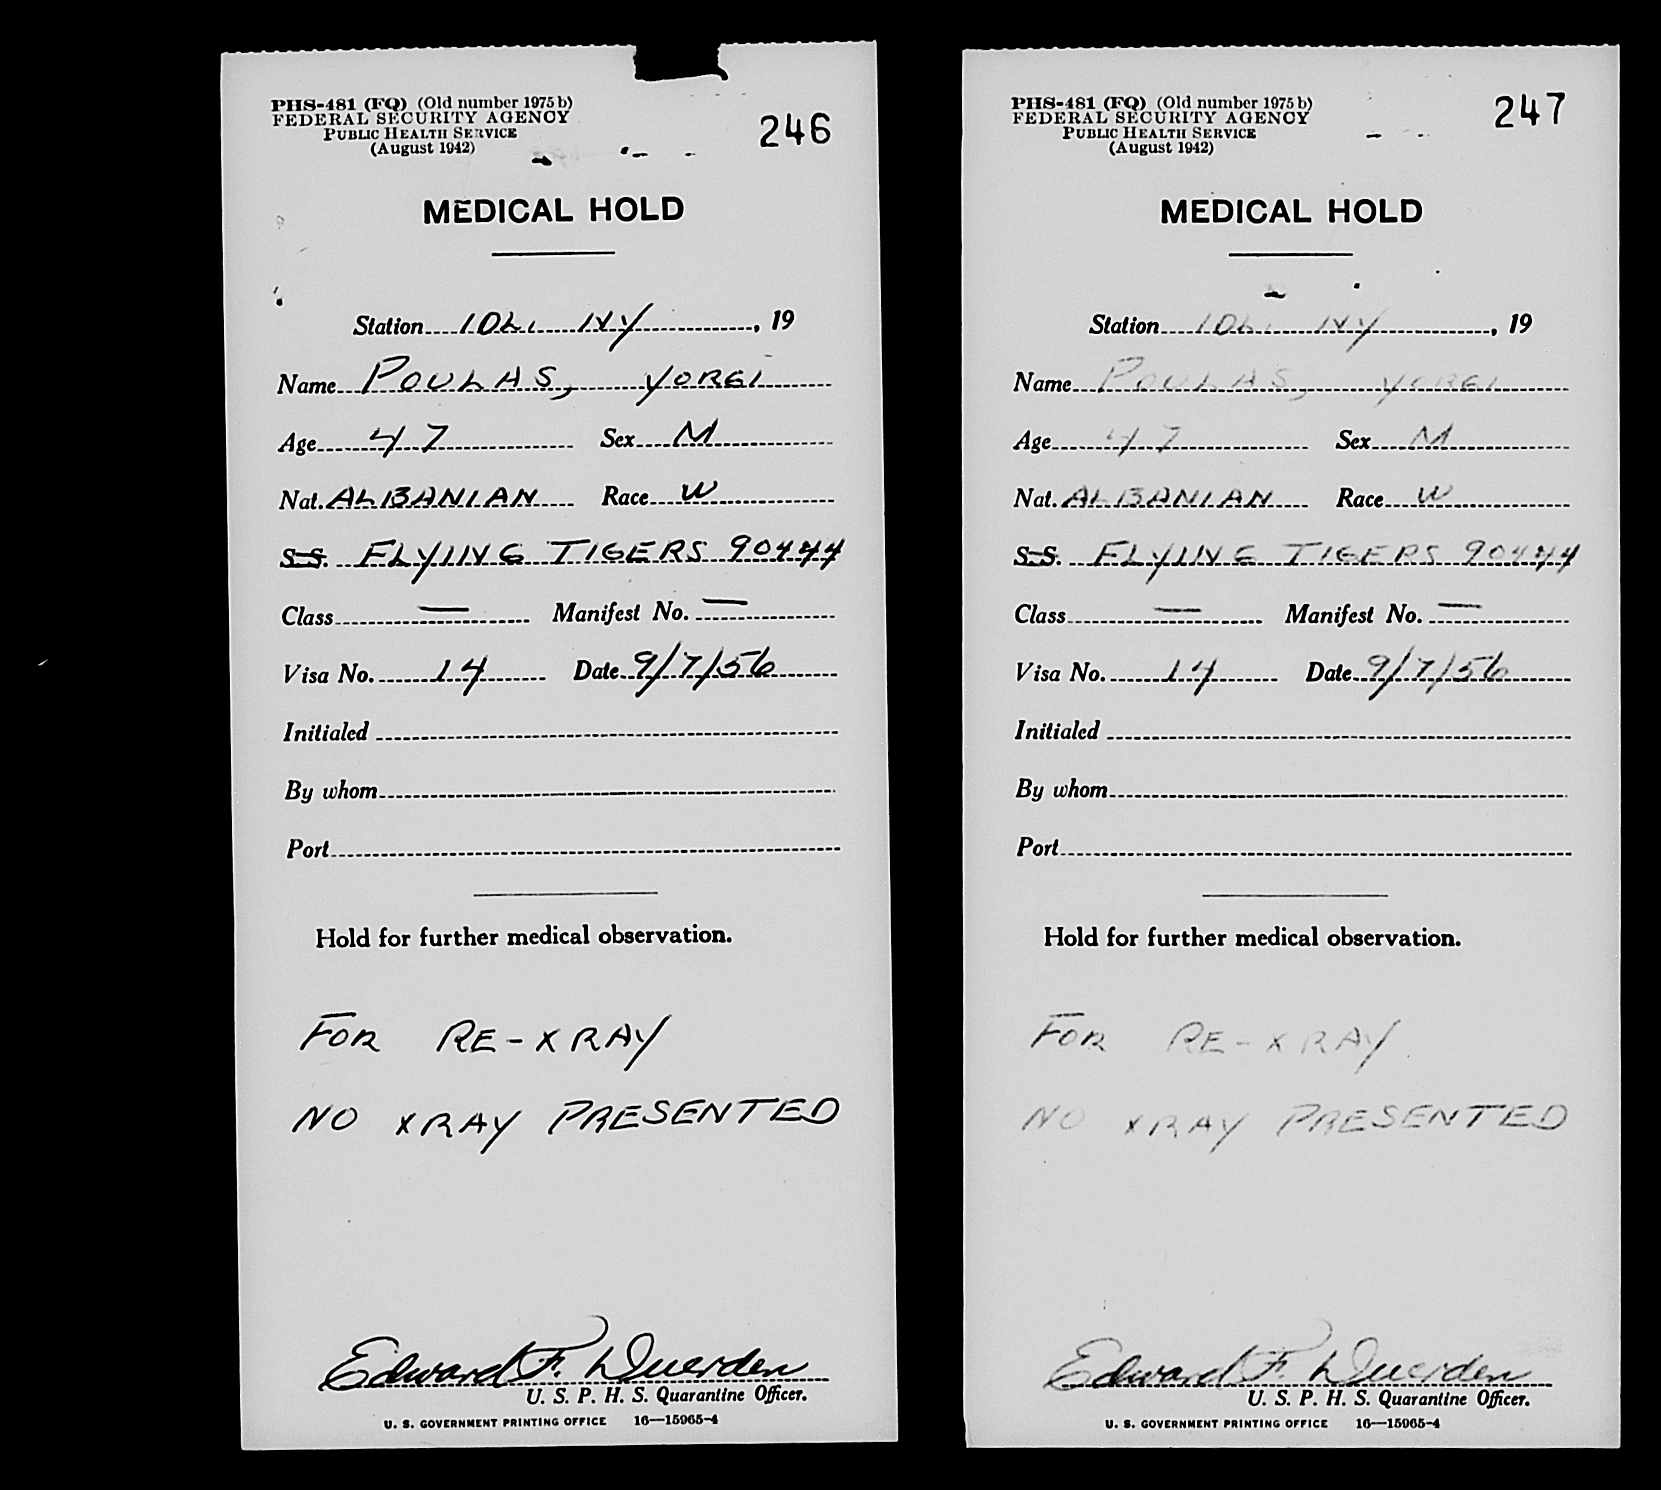 PHS-481 (FQ) (Old number 1975 b)
FEDERAL SECURITY AGENCY
PUBLIC HEALTH SERVICE
(August 1942)
246
MEDICAL HOLD
Station IDL, NY, 19
Name POULAS, YORGI
Age 47 Sex M
Nat. ALBANIAN Race W
S.S. FLYING TIGERS 90444
Class — Manifest No. —
Visa No. 14 Date 9/7/56
Initialed
By whom
Port
Hold for further medical observation.
FOR RE-XRAY
NO XRAY PRESENTED
Edward F. Duerden
U. S. P. H. S. Quarantine Officer.
U. S. GOVERNMENT PRINTING OFFICE 16—15965-4
PHS-481 (FQ) (Old number 1975 b)
FEDERAL SECURITY AGENCY
PUBLIC HEALTH SERVICE
(August 1942)
247
MEDICAL HOLD
Station IDL, NY, 19
Name POULAS, YORGI
Age 47 Sex M
Nat. ALBANIAN Race W
S.S. FLYING TIGERS 90444
Class — Manifest No. —
Visa No. 14 Date 9/7/56
Initialed
By whom
Port
Hold for further medical observation.
FOR RE-XRAY
NO XRAY PRESENTED
Edward F. Duerden
U. S. P. H. S. Quarantine Officer.
U. S. GOVERNMENT PRINTING OFFICE 16—15965-4